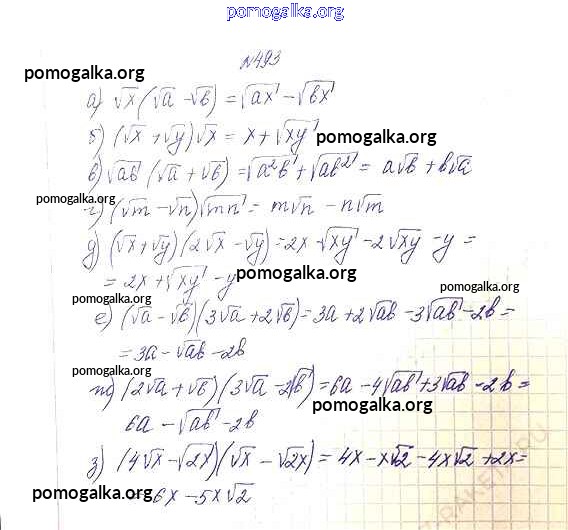 pomogalka.org
№493
pomogalka.org
а) √x (√a - √b) = √ax - √bx
б) (√x + √y)√x = x + √xy pomogalka.org
в) √ab (√a + √b) = √a²b + √ab² = a√b + b√a
pomogalka.org
г) (√m - √n)√mn = m√n - n√m
д) (√x + √y)(2√x - √y) = 2x - √xy - 2√xy - y =
= 2x + √xy - y pomogalka.org
pomogalka.org
pomogalka.org
е) (√a - √b)(3√a + 2√b) = 3a + 2√ab - 3√ab - 2b =
= 3a - √ab - 2b
pomogalka.org
ж) (2√a + √b)(3√a - 2√b) = 6a - 4√ab + 3√ab - 2b =
pomogalka.org
6a - √ab - 2b
з) (4√x - √2x)(√x - √2x) = 4x - x√2 - 4x√2 + 2x =
pomogalka.org = 6x - 5x√2